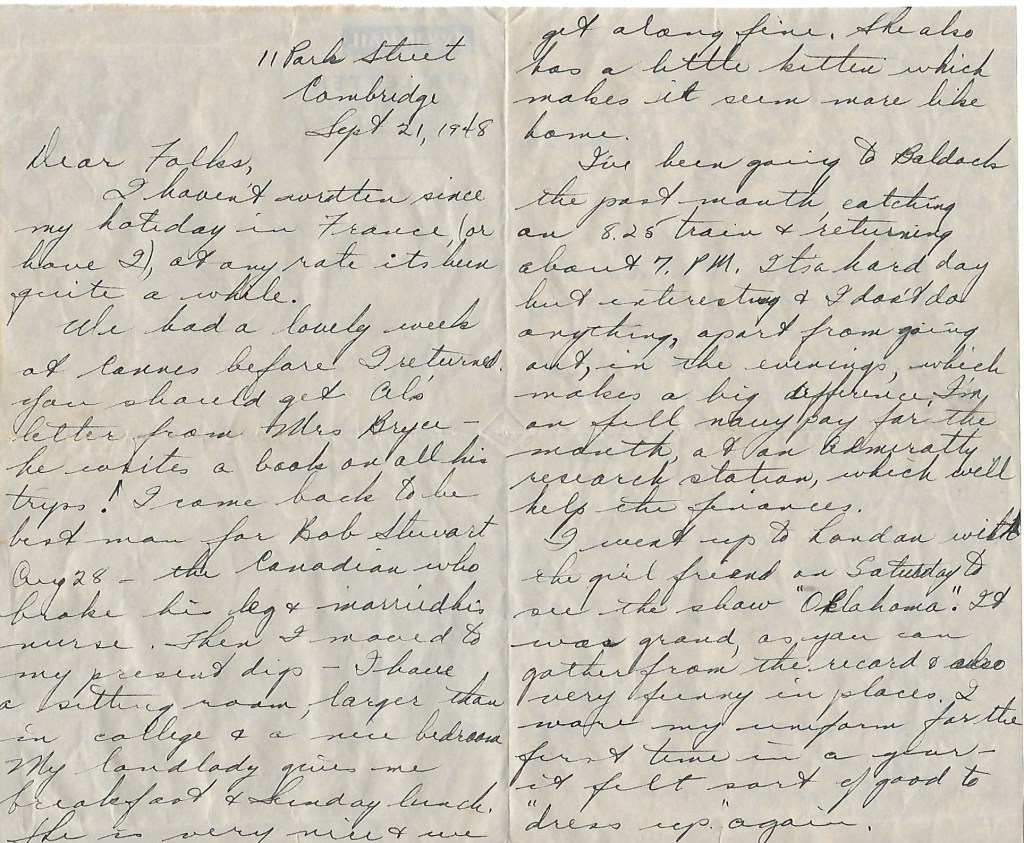 11 Park Street
Cambridge
Sept 21, 1948
Dear Folks,
I haven't written since
my holiday in France, (or
have I), at any rate its been
quite a while.
We had a lovely week
at Cannes before I returned.
You should get Al's
letter from Mrs Bryce -
he writes a book on all his
trips! I came back to be
best man for Bob Stewart
Aug 28 - the Canadian who
broke his leg & married his
nurse. Then I moved to
my present digs - I have
a sitting room, larger than
in college & a nice bedroom
My landlady gives me
breakfast & Sunday lunch.
She is very nice & we
get along fine. She also
has a little kitten which
makes it seem more like
home.
I've been going to Baldock
the past month, catching
an 8.25 train & returning
about 7. P.M. Its a hard day
but interesting & I don't do
anything, apart from going
out, in the evenings, which
makes a big difference, I'm
on full navy pay for the
month, at an Admiralty
research station, which will
help the finances.
I went up to London with
the girl friend on Saturday to
see the show "Oklahoma". It
was grand, as you can
gather from the record & also
very funny in places. I
wore my uniform for the
first time in a year -
it felt sort of good to
"dress up" again.